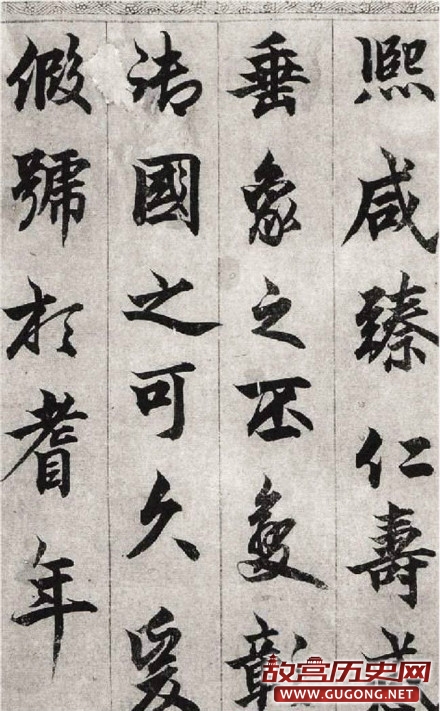 熙咸臻仁壽感
垂象之丕彰
國之可久爰
假號於耆年
故宫历史网
WWW.GUGONG.NET